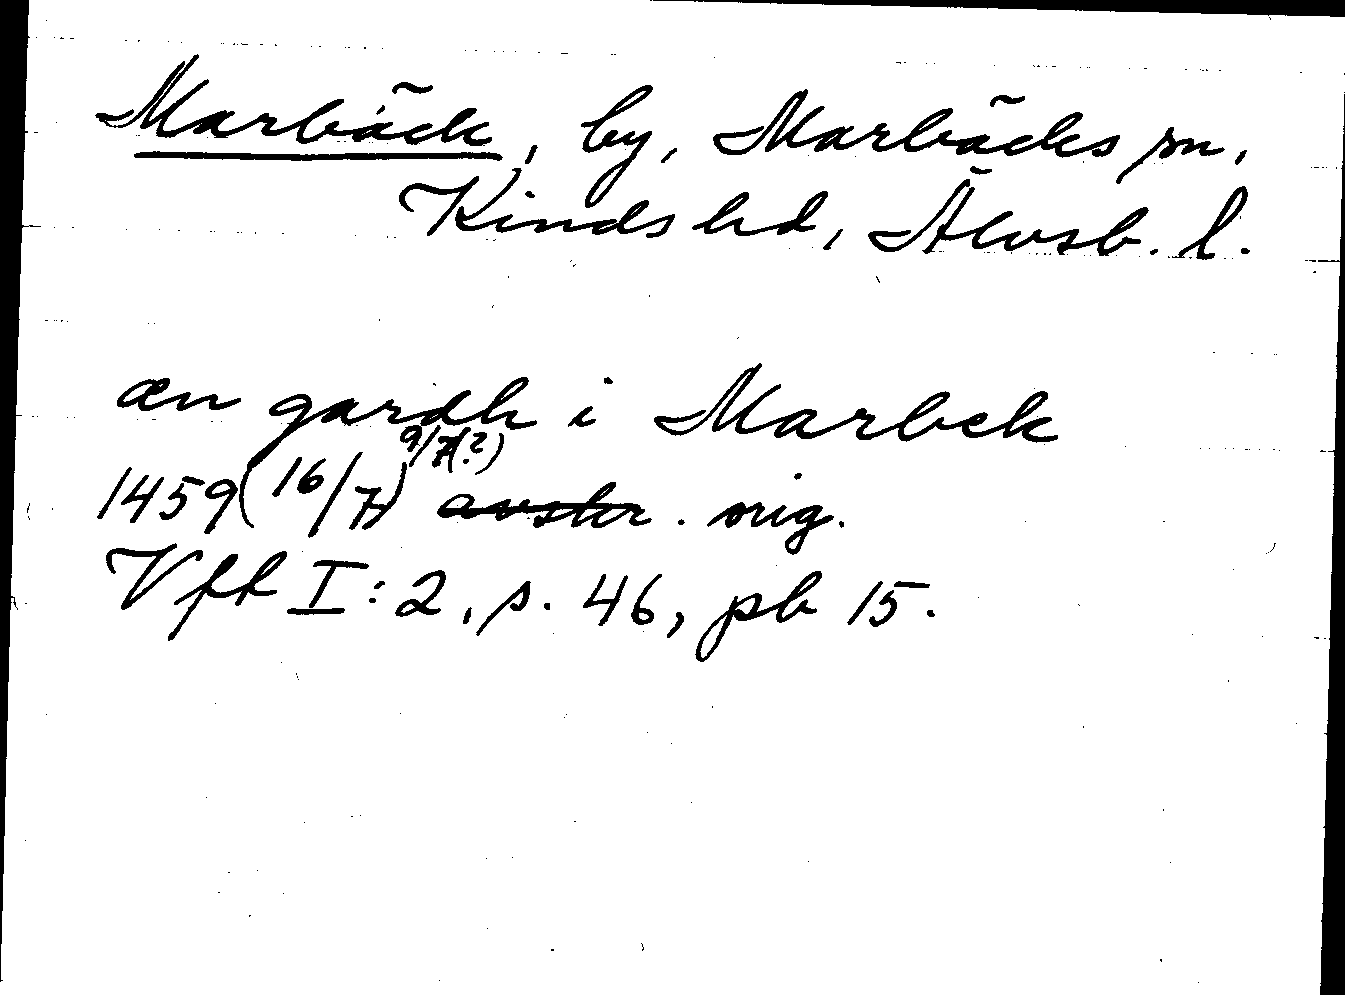 Marbäck, by, Marbäcks sn,
Kinds hd, Älvsb. l.
æn gardh i Marbek
1459 (16/7) 9/7(?) avskr. orig.
Vft I:2, s. 46, pb 15.